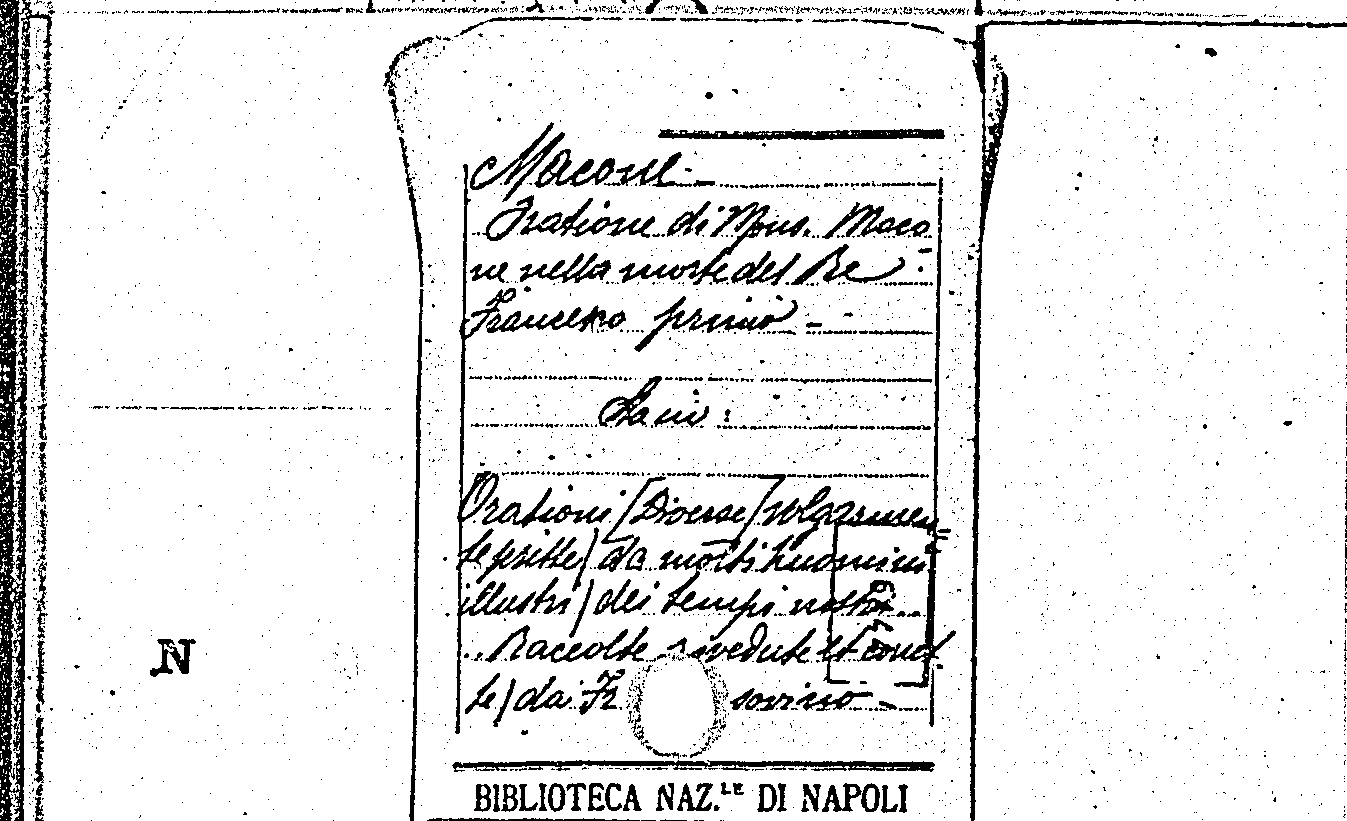 Macone -
Oratione di Mons. Maco
ne nella morte del Re
Francesco primo -
Orationi / Diverse / volgarmen=
te scritte / da molti huomini
illustri / dei tempi nostri
Raccolte rivedute et corret
te / da Fr sovino -
N
BIBLIOTECA NAZ.LE DI NAPOLI